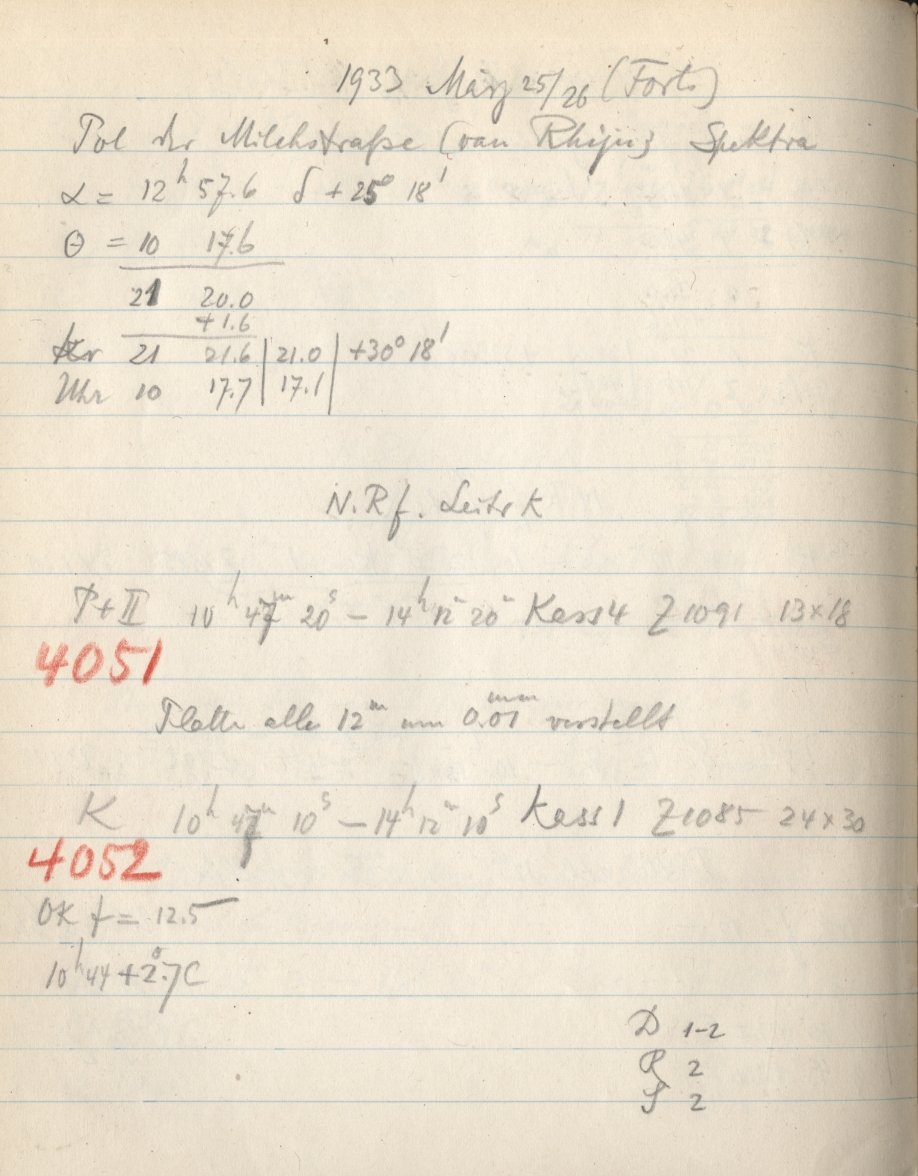 1933 März 25/26 (Forts)
Pol der Milchstraße (van Rhijn) Spektra
α = 12h 57.6 δ + 25° 18'
θ = 10 17.6
21 20.0
+1.6
21 21.6 | 21.0 | +30° 18'
Uhr 10 17.7 | 17.1 |
N.Rf. Leitr K
P+II 10h 47m 20s – 14h 12m 20s Kass 4 Z 1091 13×18
4051
Platte alle 12m um 0.01mm verstellt
K 10h 47m 10s – 14h 12m 10s Kass 1 Z 1085 24×30
4052
OK f = 12.5
10h 44 + 2.7°C
D 1-2
R 2
S 2